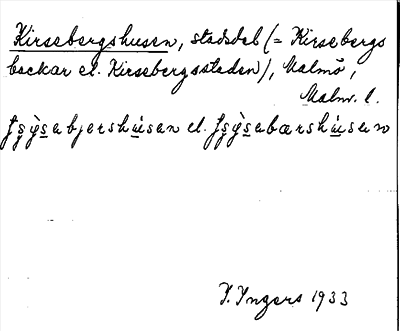 Kirsebergshusen, stadsdel (= Kirsebergs
backar el. Kirsebergsstaden), Malmö,
Malm. l.
bjershúsen el.
I. Ingers 1933